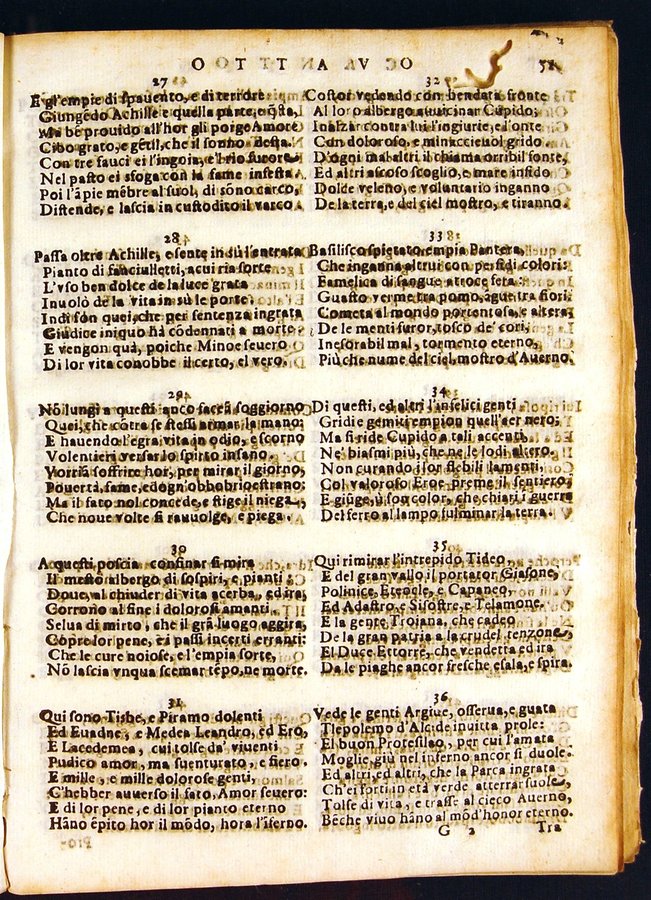 OC VR AN T T O O
51
27
E gl'empie di spauento, e di terrore
Giungēdo Achille e quella parte, e q̄sta,
Ma bē prouido all'hor gli porge Amore
Cibo grato, e gētil, che il sonno desta.
Con tre fauci ei l'ingoia, e'l rio furore
Nel pasto ei sfoga con la fame infesta
Poi l'āpie mēbre al suol, di sōno carco,
Distende, e lascia in custodito il varco
28
Passa oltre Achille, e sente in sù l'entrata
Pianto di fanciulletti, a cui ria sorte
L'vso ben dolce de la luce grata
Inuolò de la vita in sù le porte.
Indi son quei, che per sentenza ingrata
Giudice iniquo hà cōdennati a morte
E vengon quà, poiche Minoe seuero
Di lor vita conobbe il certo, el vero.
29
Nō lungi a questi anco facēa soggiorno
Quei, che cōtra se stessi armar la mano:
E hauendo l'egra vita in odio, e scorno
Volentieri versar lo spirto insano
Vorriā soffrire hor, per mirar il giorno,
Pouertà, fame, ed ogn'obbobrio estrano:
Ma il fato nol concede, e stige il niega,
Che noue volte si rauuolge, e piega.
30
A questi poscia confinar si mira
Il mesto albergo di sospiri, e pianti
Doue, al chiuder di vita acerba, ed ira,
Corrono al fine i dolorosi amanti.
Selua di mirto, che il grā luogo aggira,
Copre lor pene, ei passi incerti erranti:
Che le cure noiose, e l'empia sorte,
Nō lascia vnqua scemar tēpo, ne morte.
31
Qui sono Tisbe, e Piramo dolenti
Ed Euadne, e Medea Leandro, ed Ero,
E Lacedemea, cui tolse da' viuenti
Pudico amor, ma suenturato, e fiero.
E mille, e mille dolorose genti,
C'hebber auuerso il fato, Amor seuero:
E di lor pene, e di lor pianto eterno
Hāno ēpito hor il mōdo, hora l'īferno.
32
Costor vedendo con bendata fronte
Al loro albergo auuicinar Cupido;
Inalzār contra lui l'ingiurie, e l'onte
Cun doloroso, e minaccieuol grido.
D'ogni mal altri il chiama orribil fonte,
Ed altri ascoso scoglio, e mare infido
Dolce veleno, e voluntario inganno
De la terra, e del ciel mostro, e tiranno
33
Basilisco spietato, empia Pantera,
Che inganna altrui con perfidi colori:
Famelica di sangue atroce fera.
Guasto verme tra pomo, āgue tra fiori:
Cometa al mondo portentosa, e altera;
De le menti furor, tosco de' cori,
Inesorabil mal, tormento eterno,
Più che nume del ciel, mostro d'Auerno.
34
Di questi, ed altri l'infelici genti
Gridi e gemiti empion quell'aer nero;
Ma si ride Cupido a tali accenti,
Ne' biasmi più, che ne le lodi altero.
Non curando i lor flebili lamenti,
Col valoroso Eroe preme il sentiero;
E giūge, ù son color, che chiari ī guerra
Del ferro al lampo fulminar la terra.
35
Qui rimirar l'intrepido Tideo,
E del gran vallo il portator Giasone,
Polinice, Eteocle, e Capaneo,
Ed Adastro, e Sisostre, e Telamone.
E la gente Troiana, che cadeo
De la gran patria a la crudel tenzone,
El Duce Ettorre, che vendetta ed ira
Da le piaghe ancor fresche esala, e spira.
36
Vede le genti Argiue, osserua, e guata
Tlepolemo d'Alcide inuitta prole:
El buon Protesilao, per cui l'amata
Moglie, giù nel inferno ancor si duole.
Ed altri, ed altri, che la Parca ingrata
Ch'ei forti in età verde atterrar suole,
Tolse di vita, e trasse al cieco Auerno,
Bēche viuo hāno al mōd'honor eterno.
G 2
Tra